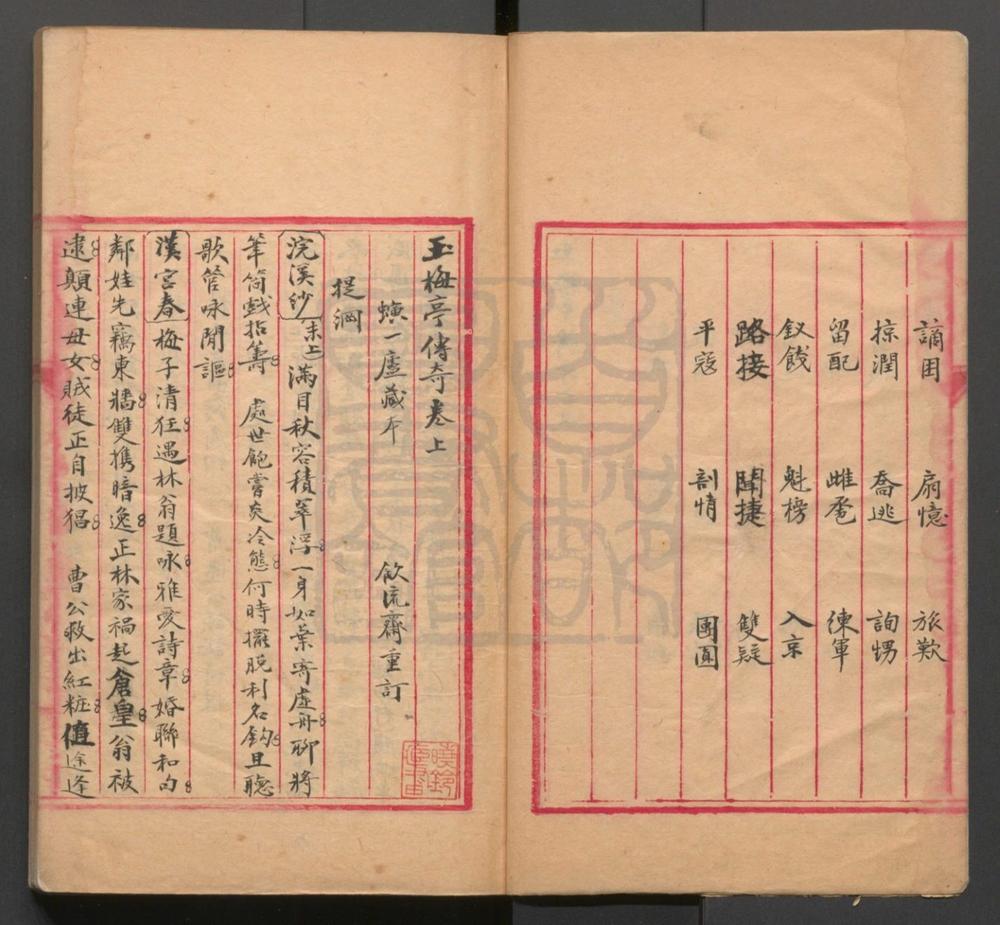 謫困 扇憶 旅歎
掠潤 喬逃 詢愣
留配 雌奩 練軍
釵餞 魁榜 入京
路接 聞捷 雙疑
平寇 剖情 團圓
玉梅亭傳奇卷上
蟫一廬藏本 飲流齋重訂
提綱
浣溪紗 末上 滿目秋容積翠浮一身如葉寄虛舟聊將
筆筒戲指籌 處世飽嘗炎冷態何時擺脫利名鈎且聽
歌管咏閒謳
漢宮春 梅子清狂遇林翁題咏雅愛詩章婚聯和句
鄰娃先竊東牆雙攜暗逸正林家禍起倉皇翁被
逮顛連母女賊徒正自披猖 曹公救出紅粧值途逢
曉鈴藏書